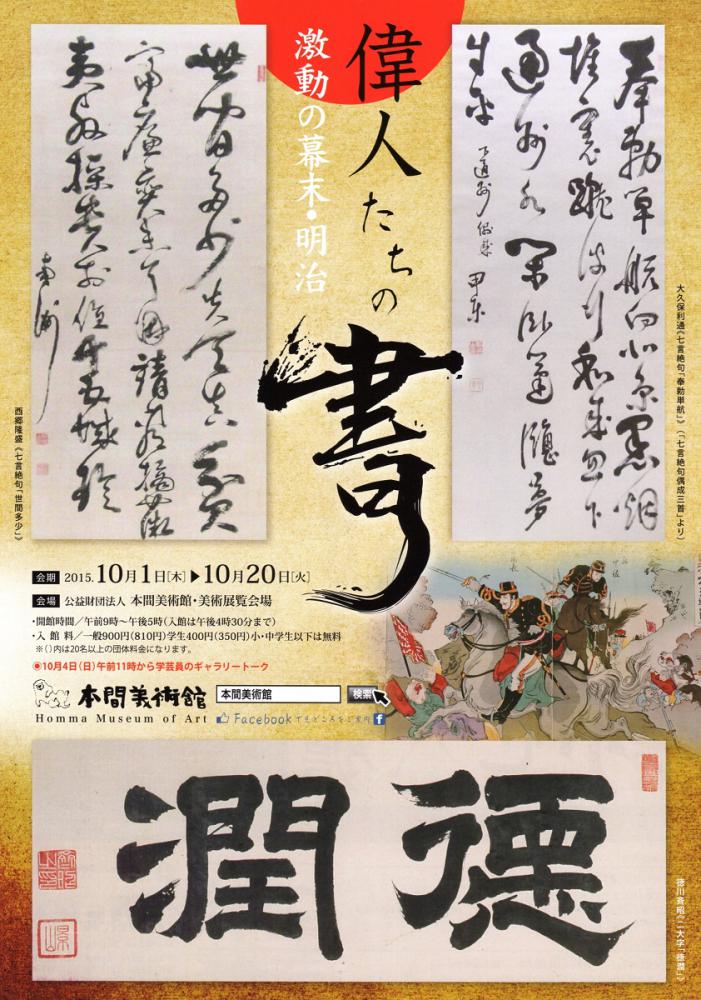 偉人たちの
書
激動の幕末・明治
奉勅単航向北京黒烟
堆裏蹴波行和成忽下
通州水閑臥篷窓夢
自平 下通州偶成 甲東
大久保利通《七言絶句「奉勅単航」》（「七言絶句偶成三首」より）
南洲
西郷隆盛《七言絶句「世間多少」》
会期 2015.10月1日[木]▶10月20日[火]
会場 公益財団法人 本間美術館・美術展覧会場
・開館時間／午前9時〜午後5時（入館は午後4時30分まで）
・入館料／一般900円（810円）学生400円（350円）小・中学生以下は無料
※（ ）内は20名以上の団体料金になります。
◉10月4日（日）午前11時から学芸員のギャラリートーク
本間美術館
Homma Museum of Art
本間美術館 検索
Facebookで見どころをご案内 f
德潤
徳川斉昭《二大字「徳潤」》